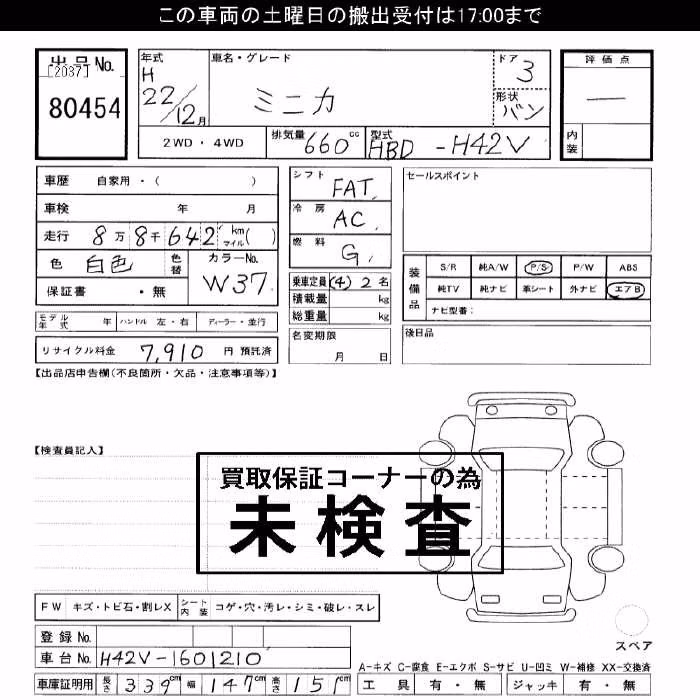 この車両の土曜日の搬出受付は17:00まで
出品No.
[2037]
80454
年式
H
22/12月
車名・グレード
ミニカ
ドア
3
形状
バン
評価点
―
内装
2WD・4WD
排気量 660cc
型式 HBD-H42V
車歴 自家用・( )
車検 年 月
走行 8万8千642 km マイル( )
色 白色 色替
カラーNo.
W37
保証書 ・無
シフト FAT
冷房 AC
燃料 G
乗車定員 (4) 2名
積載量 kg
総重量 kg
名変期限
月 日
セールスポイント
装備品
S/R 純A/W P/S P/W ABS
純TV 純ナビ 革シート 外ナビ エアB
ナビ型番：
後日品
モデル年式 年 ハンドル 左・右 ディーラー・並行
リサイクル料金 7,910 円 預託済
【出品店申告欄(不良箇所・欠品・注意事項等)】
【検査員記入】
買取保証コーナーの為
未検査
FW キズ・トビ石・割レX シート内装 コゲ・穴・汚レ・シミ・破レ・スレ
登録No.
車台No. H42V-1601210
車庫証明用 長さ 339cm 幅 147cm 高さ 151cm
スペア
A-キズ C-腐食 E-エクボ S-サビ U-凹ミ W-補修 XX-交換済
工具 有・無 ジャッキ 有・無